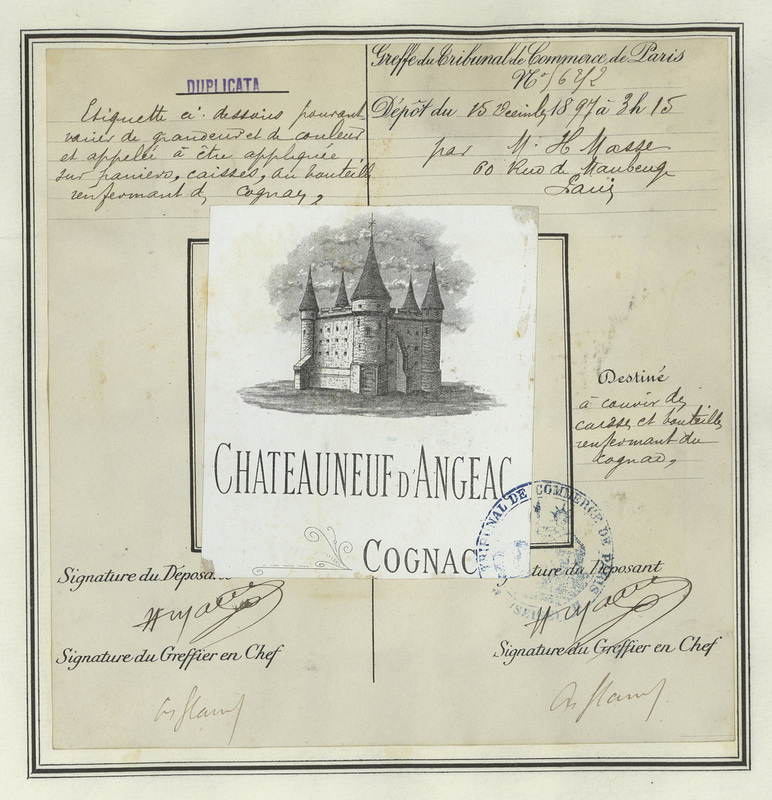 DUPLICATA
Etiquette ci-dessous pouvant
varier de grandeur et de couleur
et appelée à être appliquée
sur paniers, caisses, ou bouteilles
renfermant du cognac,
Greffe du Tribunal de Commerce de Paris
Dépôt du 15 Décembre 1897 à 3h 15
par M. H Masse
60 Rue de Maubeuge
Paris
CHATEAUNEUF D'ANGEAC
COGNAC
Destiné
à couvrir des
caisses et bouteilles
renfermant du
cognac,
TRIBUNAL DE COMMERCE DE PARIS
Signature du Déposa
ture du Déposant
Signature du Greffier en Chef
Signature du Greffier en Chef